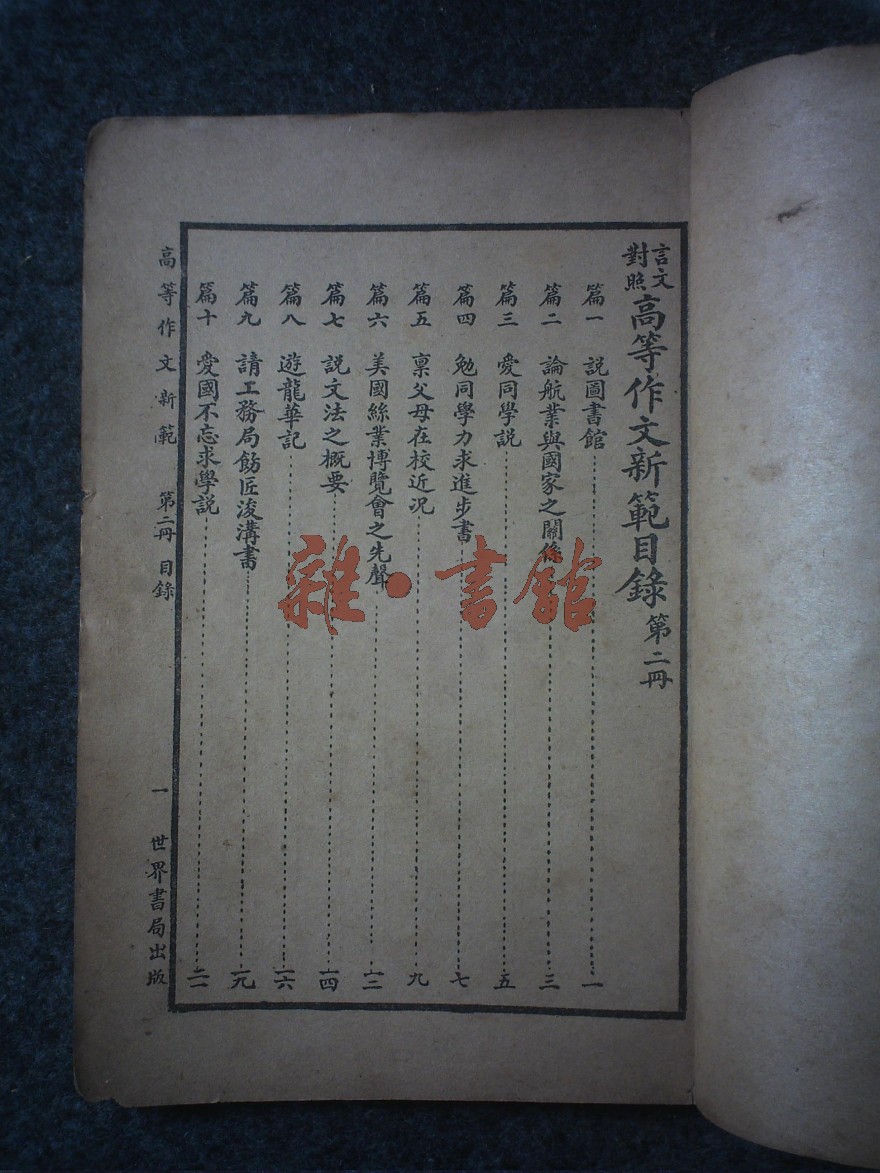 言文對照高等作文新範目錄 第二冊
篇一 說圖書館 一
篇二 論航業與國家之關係 三
篇三 愛同學説 五
篇四 勉同學力求進步書 七
篇五 禀父母在校近况 九
篇六 美國絲業博覽會之先聲 一二
篇七 説文法之概要 一四
篇八 遊龍華記 一六
篇九 請工務局飭匠浚溝書 一九
篇十 愛國不忘求學説 二一
高等作文新範 第二冊 目錄 一 世界書局出版
雜·書館